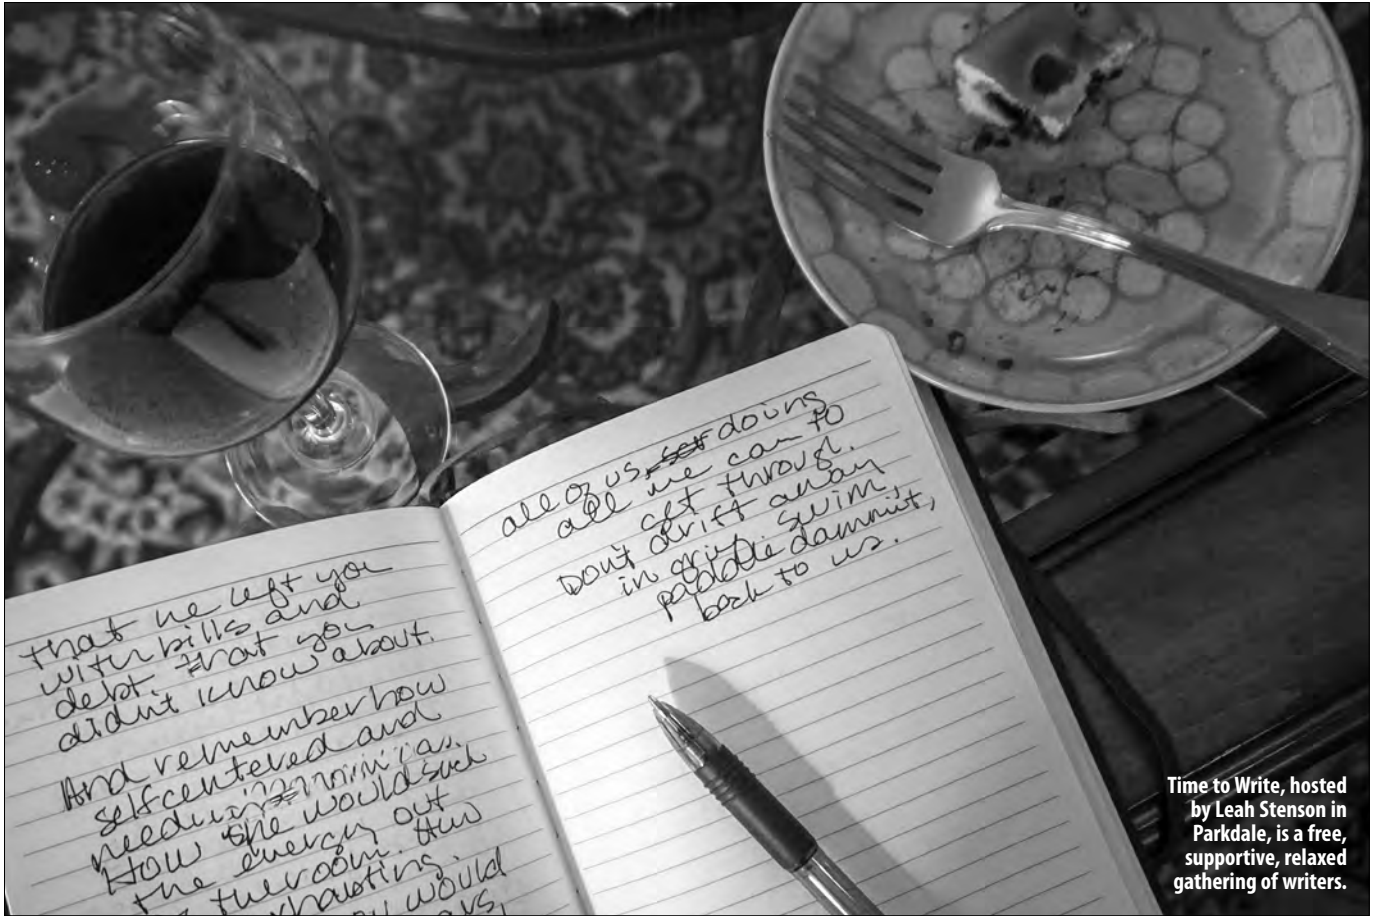 that he left you
with bills and
debt. that you
didn't know about.
And remember how
selfcentered and
How she would such
the energy out
the room. How
would
all of us doing
all we can to
get through.
Don't drift away
in grief swim,
paddle dammit,
back to us.
Time to Write, hosted
by Leah Stenson in
Parkdale, is a free,
supportive, relaxed
gathering of writers.